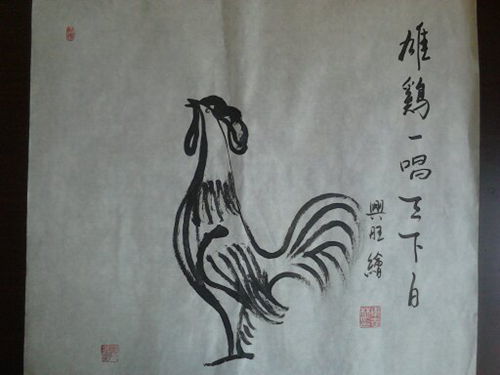 雄鷄一唱天下白
興旺繪